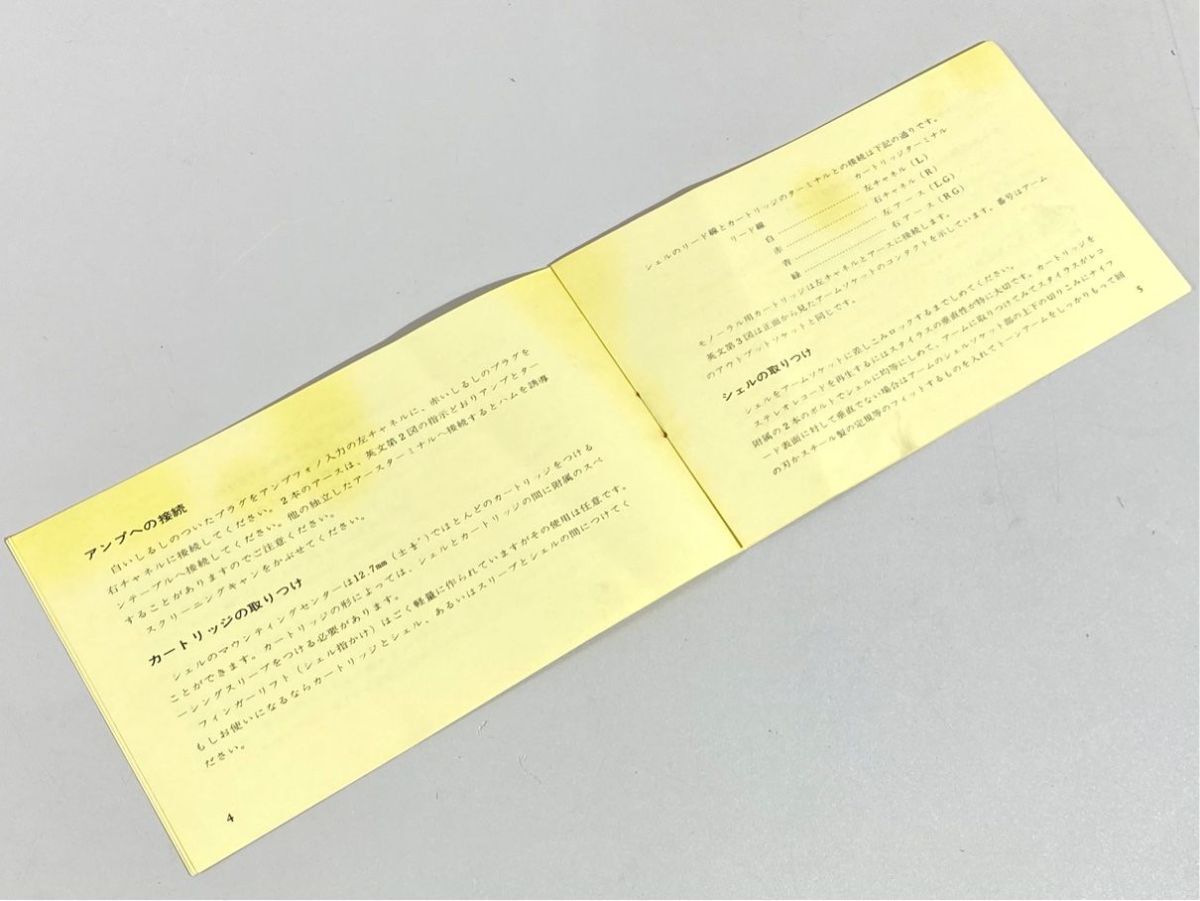 アンプへの接続
白いしるしのついたプラグをアンプフォノ入力の左チャネルに、赤いしるしのプラグを
右チャネルに接続してください。2本のアースは、英文第2図の指示どおりアンプとター
ンテーブルへ接続してください。他の独立したアースターミナルへ接続するとハムを誘導
することがありますのでご注意ください。
スクリーニングキャンをかぶせてください。
カートリッジの取りつけ
シェルのマウンティングセンターは12.7mm ではとんどのカートリッジをつける
ことができます。カートリッジの形によっては、シェルとカートリッジの間に附属のスペ
ーシングスリーブをつける必要があります。
フィンガーリフト(シェル指かけ)はごく軽量に作られていますがその使用は任意です。
もしお使いになるならカートリッジとシェル、あるいはスリーブとシェルの間につけてく
ださい。
4
シェルのリード線とカートリッジのターミナルとの接続は下記の通りです。
リード線 カートリッジターミナル
白 左チャネル(L)
赤 右チャネル(R)
青 左アース(LG)
緑 右アース(RG)
モノーラル用カートリッジは左チャネルとアースに接続します。
英文第3図は正面から見たアームソケットのコンタクトを示しています。番号はアーム
のアウトプットソケットと同じです。
シェルの取りつけ
シェルをアームソケットに差しこみロックするまでしめてください。
ステレオレコードを再生するにはスタイラスの垂直性が特に大切です。カートリッジを
附属の2本のボルトでシェルに均等にしめて、アームに取りつけてみてスタイラスがレコ
ード表面に対して垂直でない場合はアームのシェルソケット部の上下の切りこみにナイフ
の刃かスチール製の定規等のフィットするものを入れてトーンアームをしっかりもって回
5